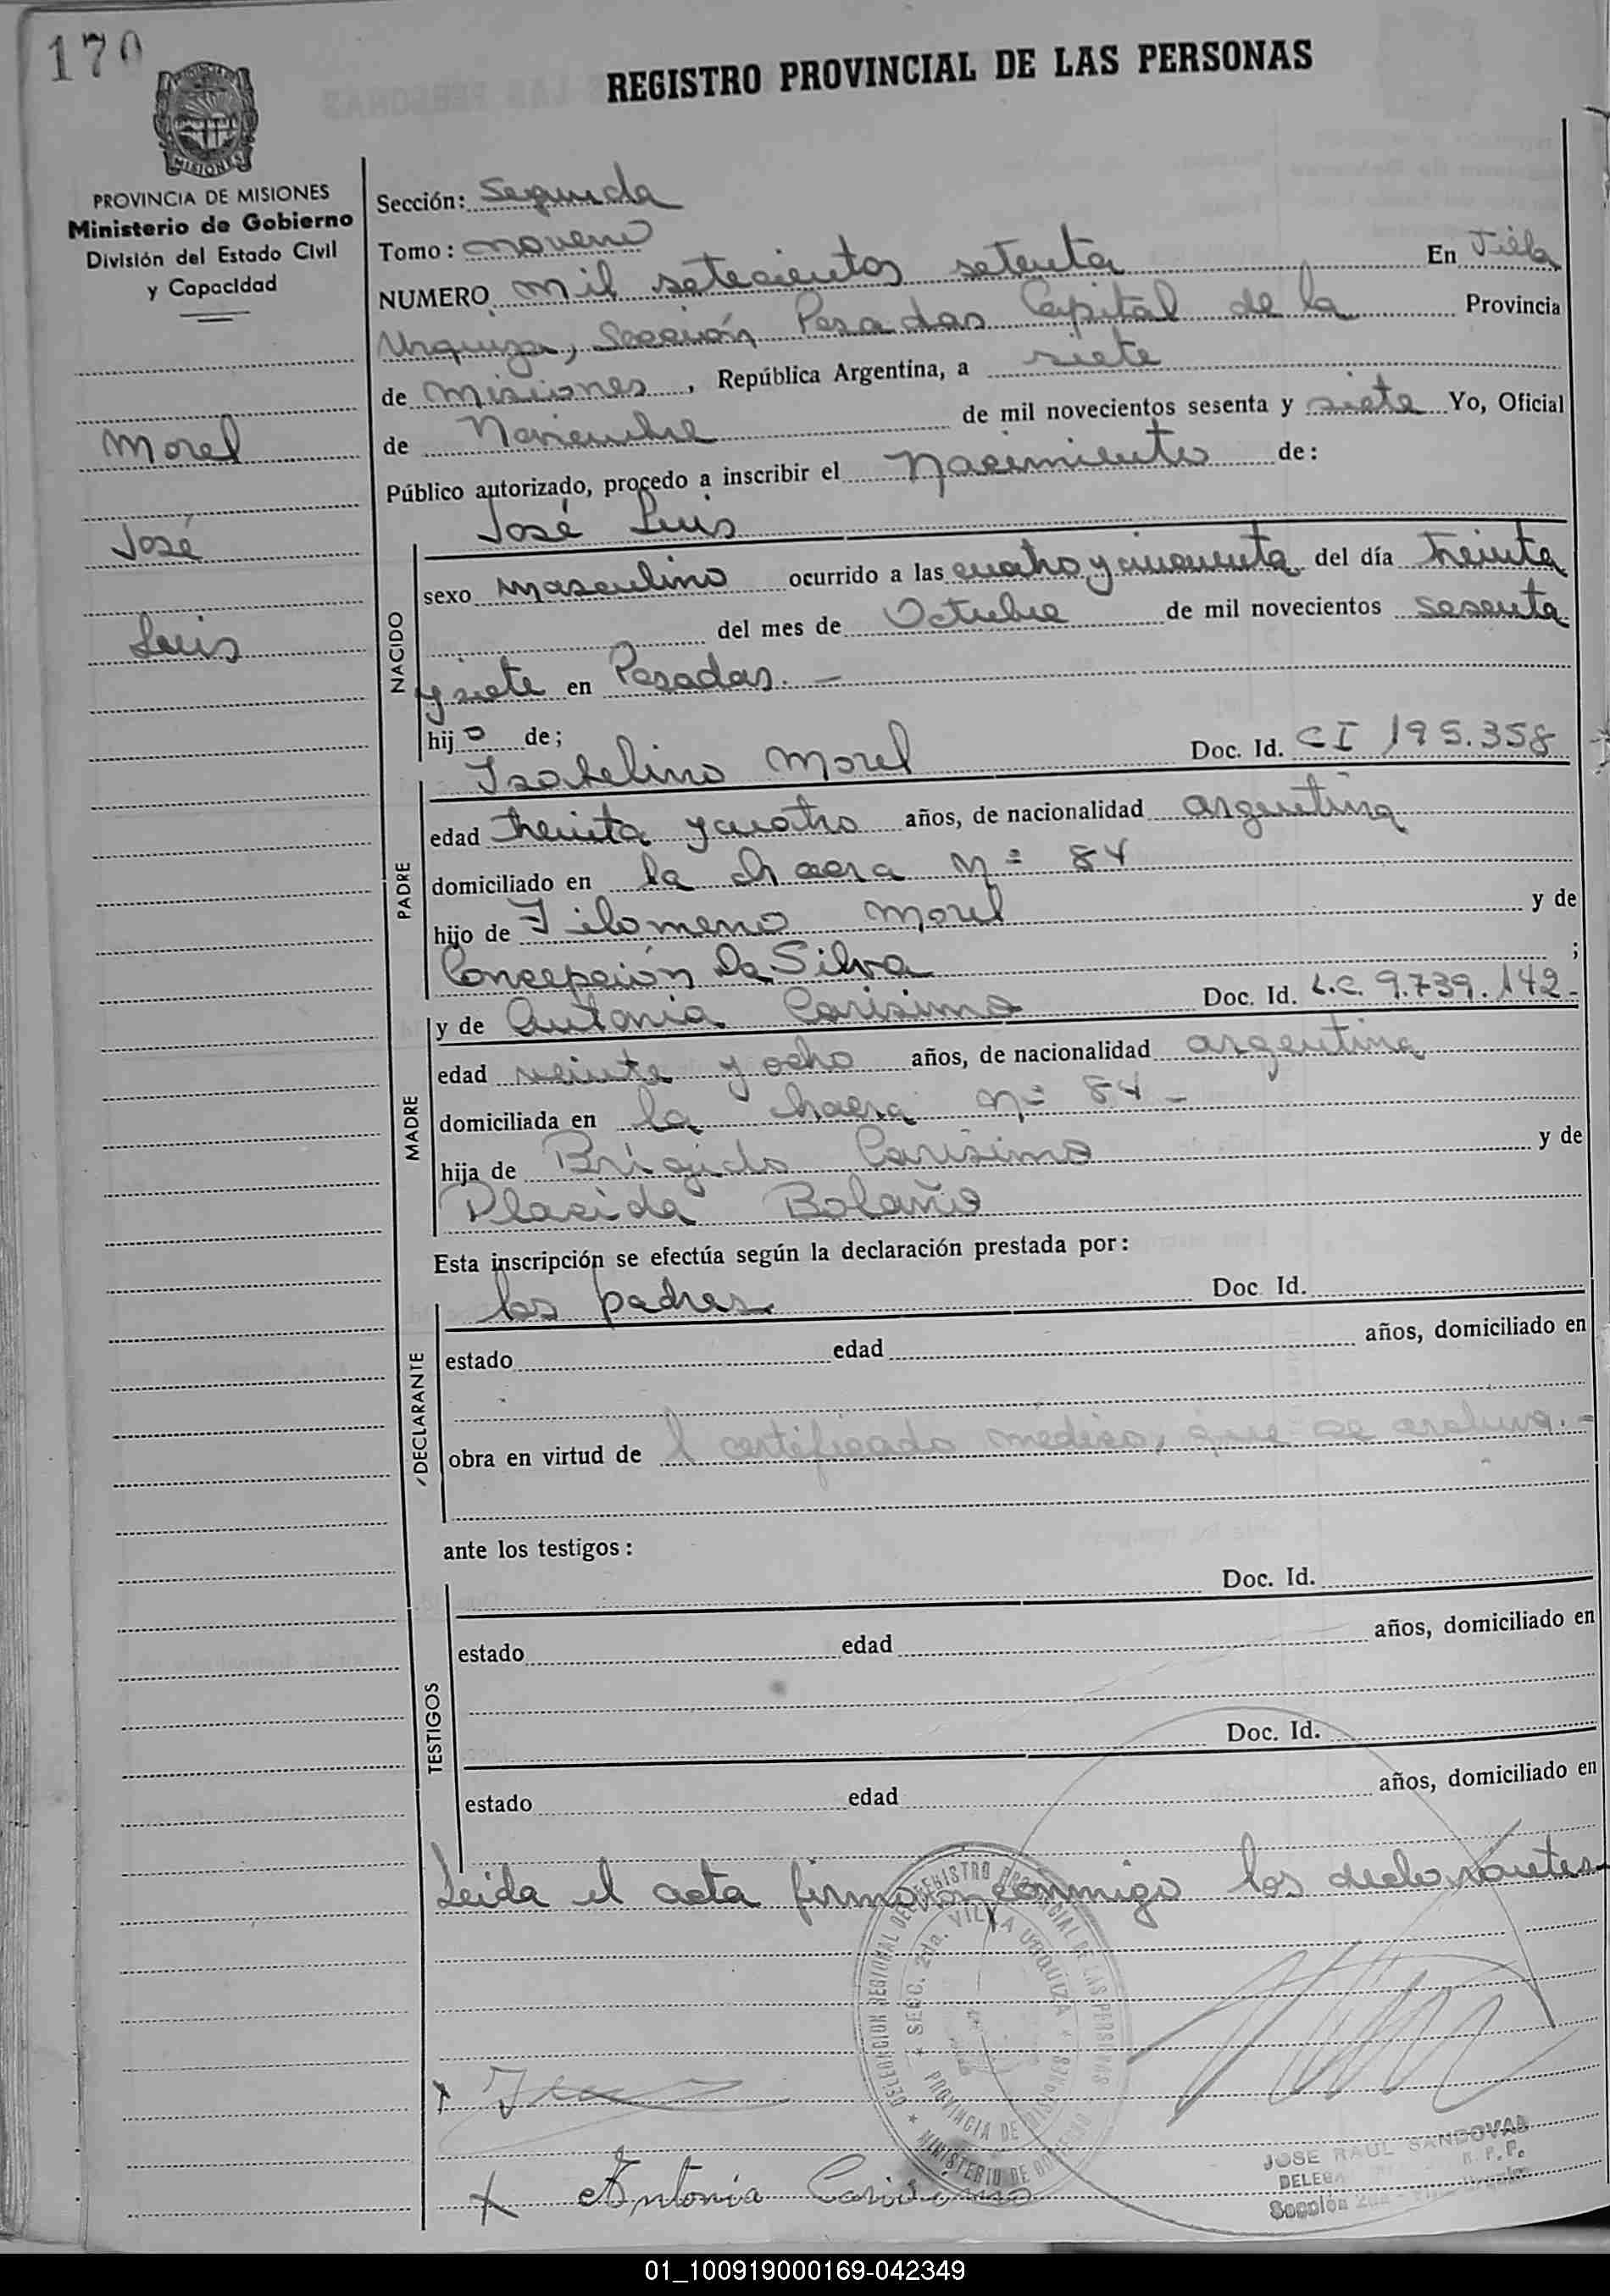 170
REGISTRO PROVINCIAL DE LAS PERSONAS
MISIONES
PROVINCIA DE MISIONES
Ministerio de Gobierno
División del Estado Civil
y Capacidad
Morel
José
Luis
Sección: Segunda
Tomo: noveno
NUMERO mil setecientos setenta En Villa
Urquiza, Sección Posadas Capital de la Provincia
de Misiones, República Argentina, a siete
de Noviembre de mil novecientos sesenta y siete Yo, Oficial
Público autorizado, procedo a inscribir el Nacimiento de:
José Luis
NACIDO
sexo Masculino ocurrido a las cuatro y cincuenta del día treinta
del mes de Octubre de mil novecientos sesenta
y siete en Posadas. —
hijo de;
PADRE
Isabelino Morel Doc. Id. CI 195.358
edad treinta y cuatro años, de nacionalidad argentina
domiciliado en la chacra Nº 84
hijo de Filomeno Morel y de
Concepción Da Silva ;
MADRE
y de Antonia Carisimo Doc. Id. L.C. 9.739.142-
edad veinte y ocho años, de nacionalidad argentina
domiciliada en la chacra nº 84 -
hija de Brigido Carisimo y de
Placida Bolaño
Esta inscripción se efectúa según la declaración prestada por:
DECLARANTE
los padres Doc Id.
estado edad años, domiciliado en
obra en virtud de l certificado médico, que se archiva.-
ante los testigos:
TESTIGOS
Doc. Id.
estado edad años, domiciliado en
Doc. Id.
estado edad años, domiciliado en
Leida el acta firmaron conmigo los declarantes-
DELEGACION REGIONAL DEL REGISTRO PROVINCIAL DE LAS PERSONAS
* SECC. 2da. VILLA URQUIZA *
PROVINCIA DE MISIONES
* MINISTERIO DE GOBIERNO
x
JOSE RAUL SANDOVAL
DELEGA R.P.P.
Sección 2da
x Antonia Carisimo
01_100919000169-042349